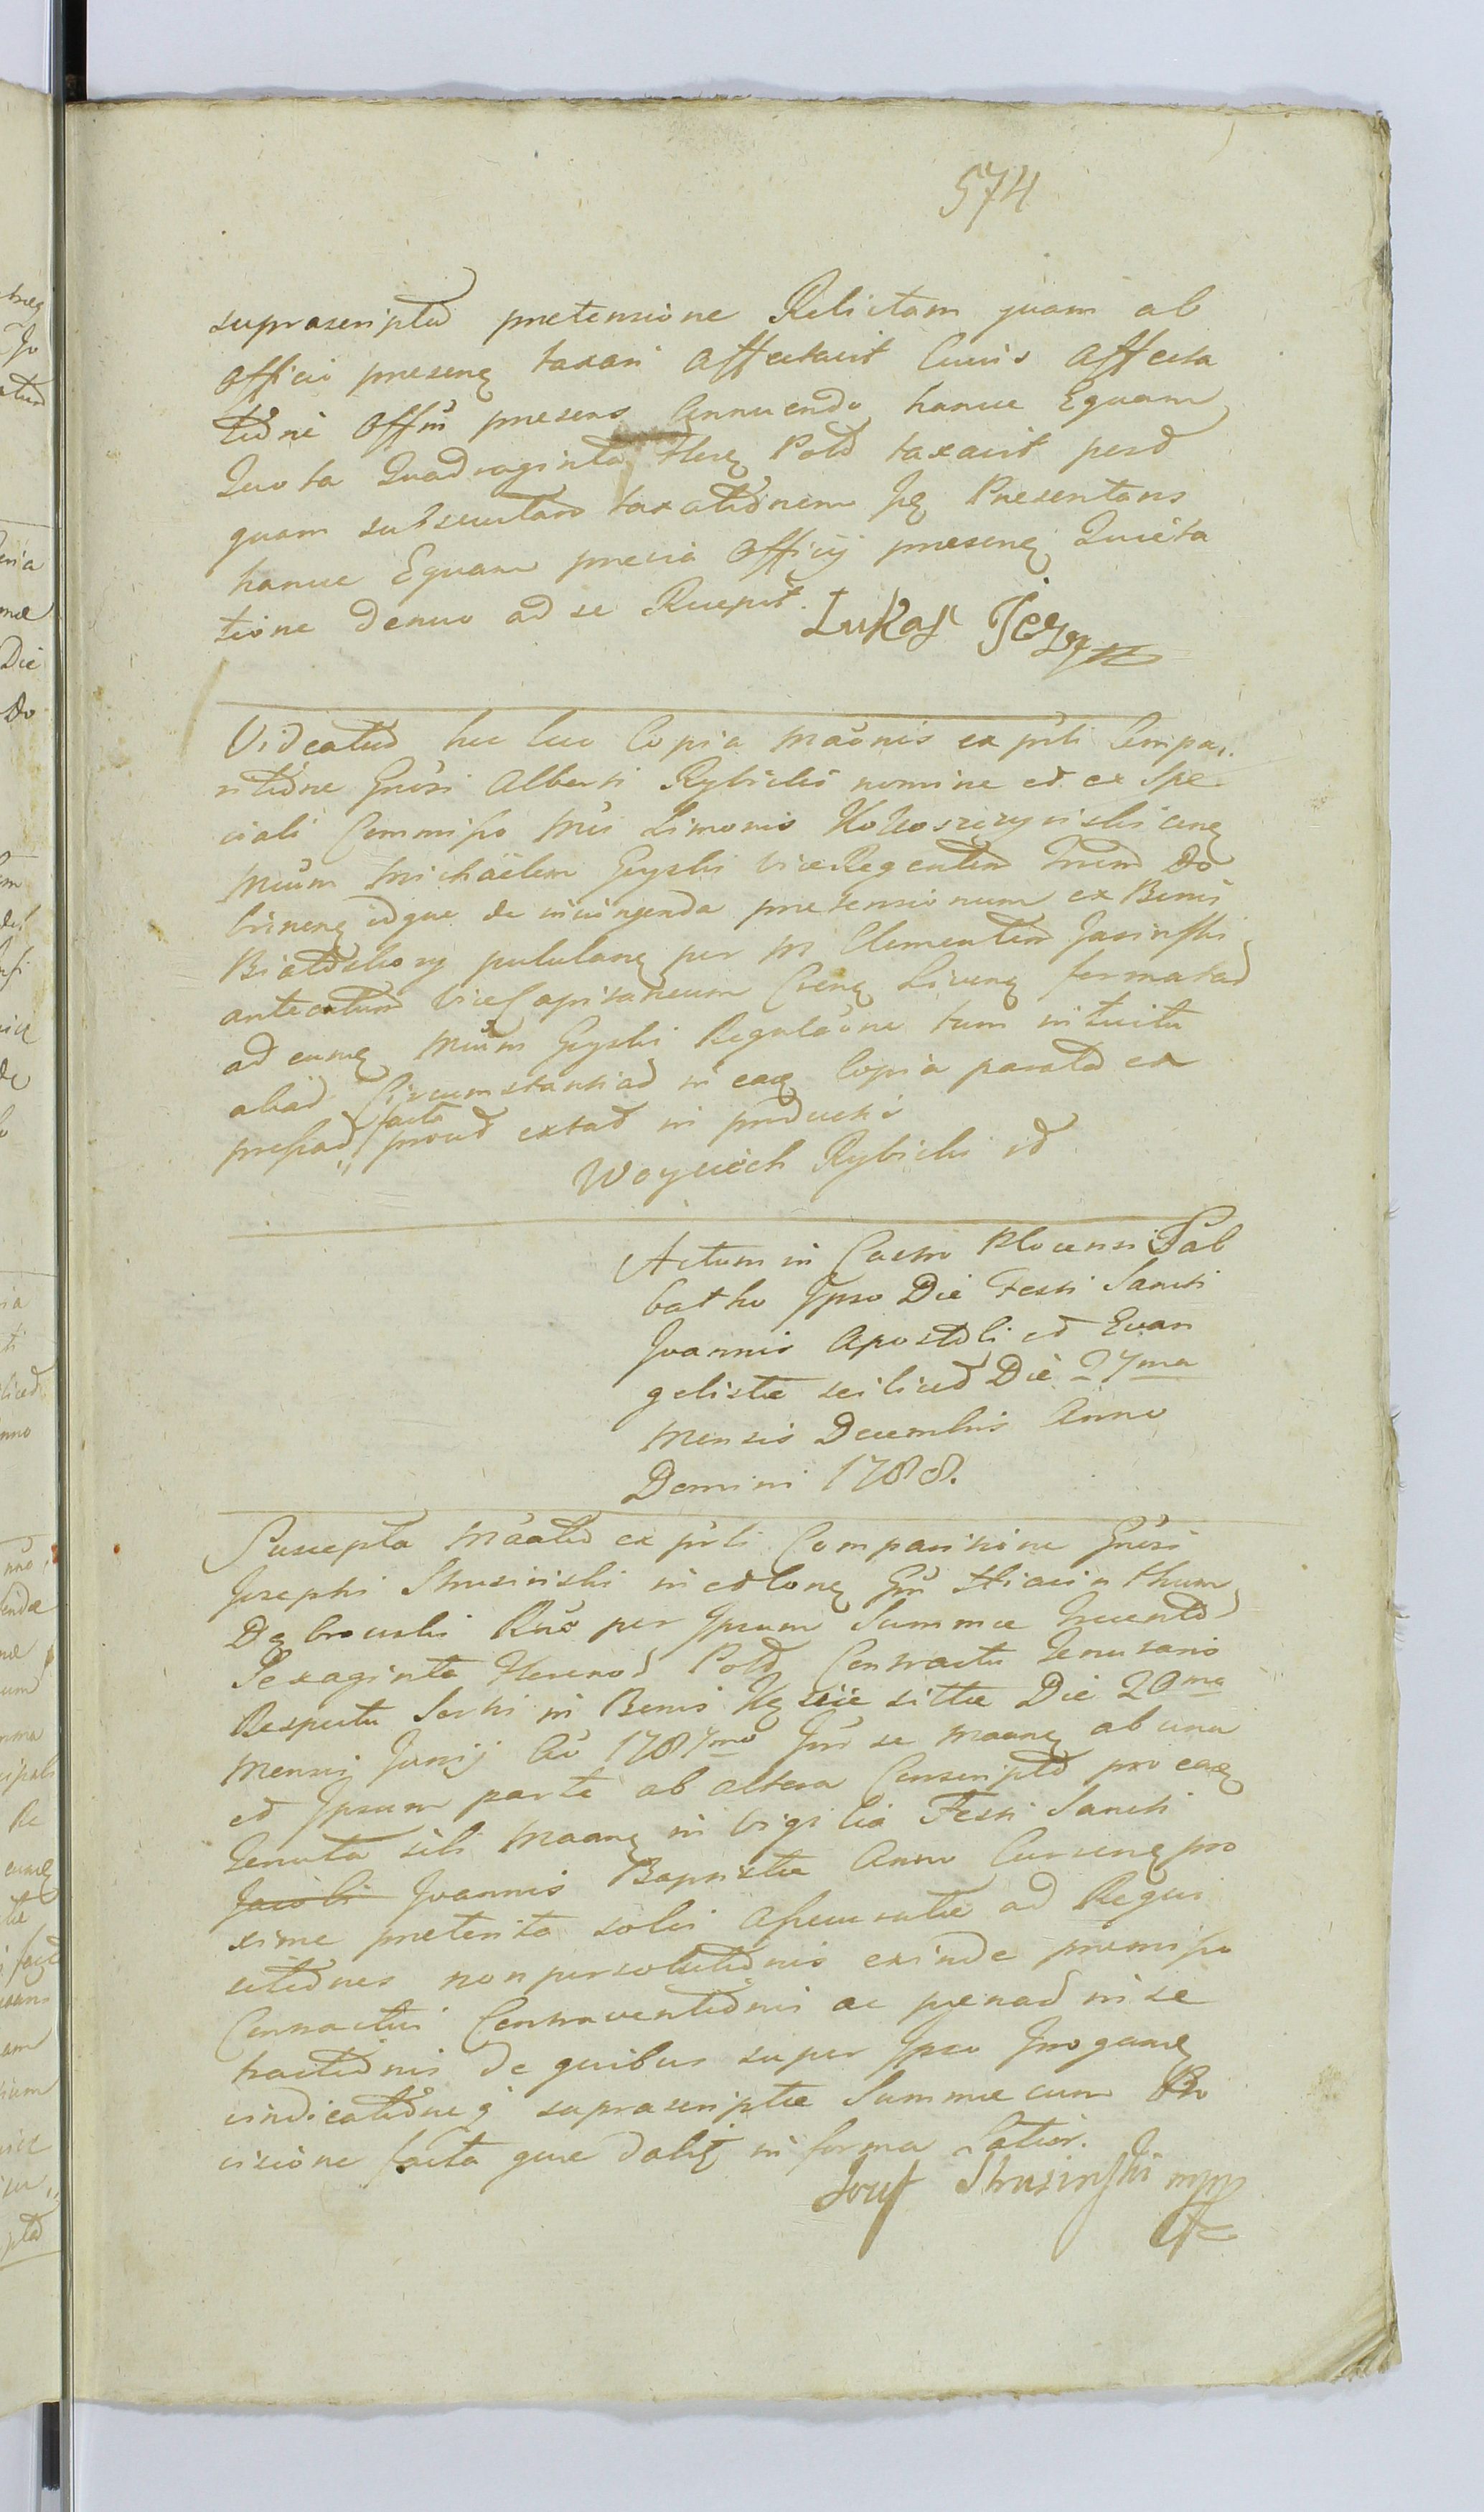 574
suprascripta pretensione Relictam quam ab
Officio presenę taxari Affectavit Cuius Affecta
tioni Offm presens Annuendo hancce Equam
Quota Quadraginta Flerę Pold taxavit postd
quam subsecutam taxationem pę Presentans
hancce Equam previa Officij presenę Quieta
tione denuo ad se Recepit.
Lukasz
Videatur hee loco Copia Maõnis ex pñti Compa
ritione Gñosi Alberti Rybicki nomine et ex Spe
ciali Commisso Mci Simonis Kokoszczynski
Mcum Michaelem Gzyski ViceRegentem Do
brinenę idque de pretensionum ex Bonis
pululanę per M Clementem Jasinski
antecatum ViceCapitaneum Livenę formatad
ad eumę Mcum Gzyski Regulaõne tum intuitu
aliad Circumstantiad in eaę Copia paratd ex
pressad facta prout extat in producti
Woyciech Rybicki id
Actum in Castro Plocensi Sab
batho Ipso Die Festi Sancti
Joannis Apostoli et Evan
geliste scilicet Die 27ma
Mensis Decembris Anno
Domini 1788.
Suscepta Maatio ex pñti Comparitione Gñosi
Josephi Strusinski Gñ Hiacinthum
Dębrowski per Ipsum Summe Trecentd
Sexaginta Florenod Pold Contractu Tenutario
Respectu Sortis in Bonis sitte Die 20ma
Mensis Junij Aõ 1787mo se Maanę ab una
et Ipsum parte ab altera Conscriptd pro eaę
Tenuta sibi Maanę in Vigilia Festi Sancti
Jacobi Joannis Baptiste Anno Currenę pro
xime preterita solvi Assecurate ad Requi
sitiones non persolutionis exinde premisso
Contractui Contraventionis ac penad in se
tractionis de quibus super Ipso Irroganę
vindicationeq suprascripte Summe cum Pro
visione facta que dabit in forma Latior.
Jozef Strusinski mpp